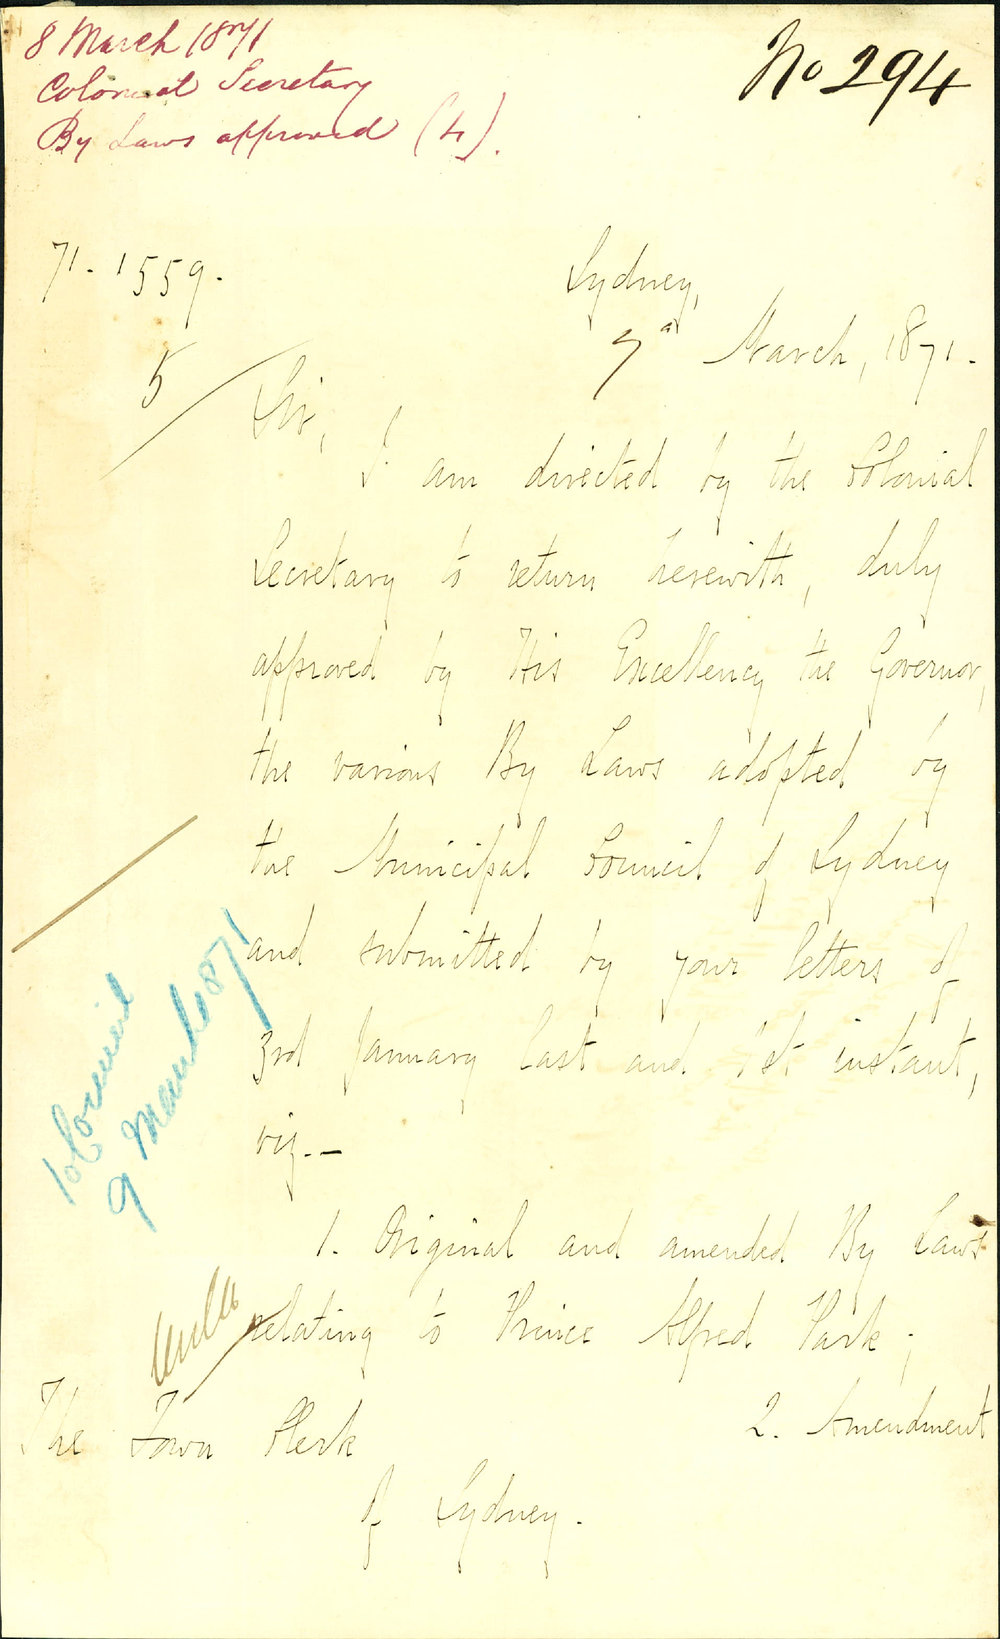 8 March 1871
Colonial Secretary
By Laws approved (4).
No 294
71.1559.
Sydney,
7 March, 1871.
5
Sir,
I am directed by the Colonial
Secretary to return herewith, duly
approved by His Excellency the Governor,
the various By Laws adopted by
the Municipal Council of Sydney
and submitted by your letters of
3rd January last and 1st instant,
viz.—
To Council
9 March 1871
1. Original and amended By Laws
relating to Prince Alfred Park;
2. Amendment
The Town Clerk
of Sydney.